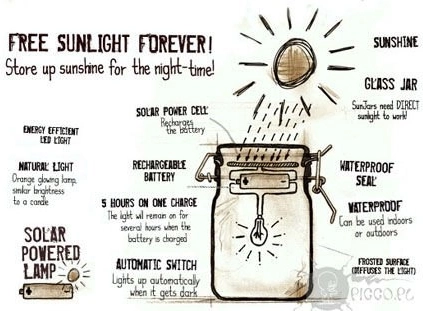 FREE SUNLIGHT FOREVER!
Store up sunshine for the night-time!
SUNSHINE
GLASS JAR
SunJars need DIRECT
sunlight to work!
SOLAR POWER CELL
Recharges
the battery
ENERGY EFFICIENT
LED LIGHT
NATURAL LIGHT
Orange glowing lamp,
similar brightness
to a candle
RECHARGEABLE
BATTERY
WATERPROOF
SEAL
5 HOURS ON ONE CHARGE
The light will remain on for
several hours when the
battery is charged
WATERPROOF
Can be used indoors
or outdoors
SOLAR
POWERED
LAMP
AUTOMATIC SWITCH
Lights up automatically
when it gets dark
FROSTED SURFACE
(DIFFUSES THE LIGHT)
PICCO.PL